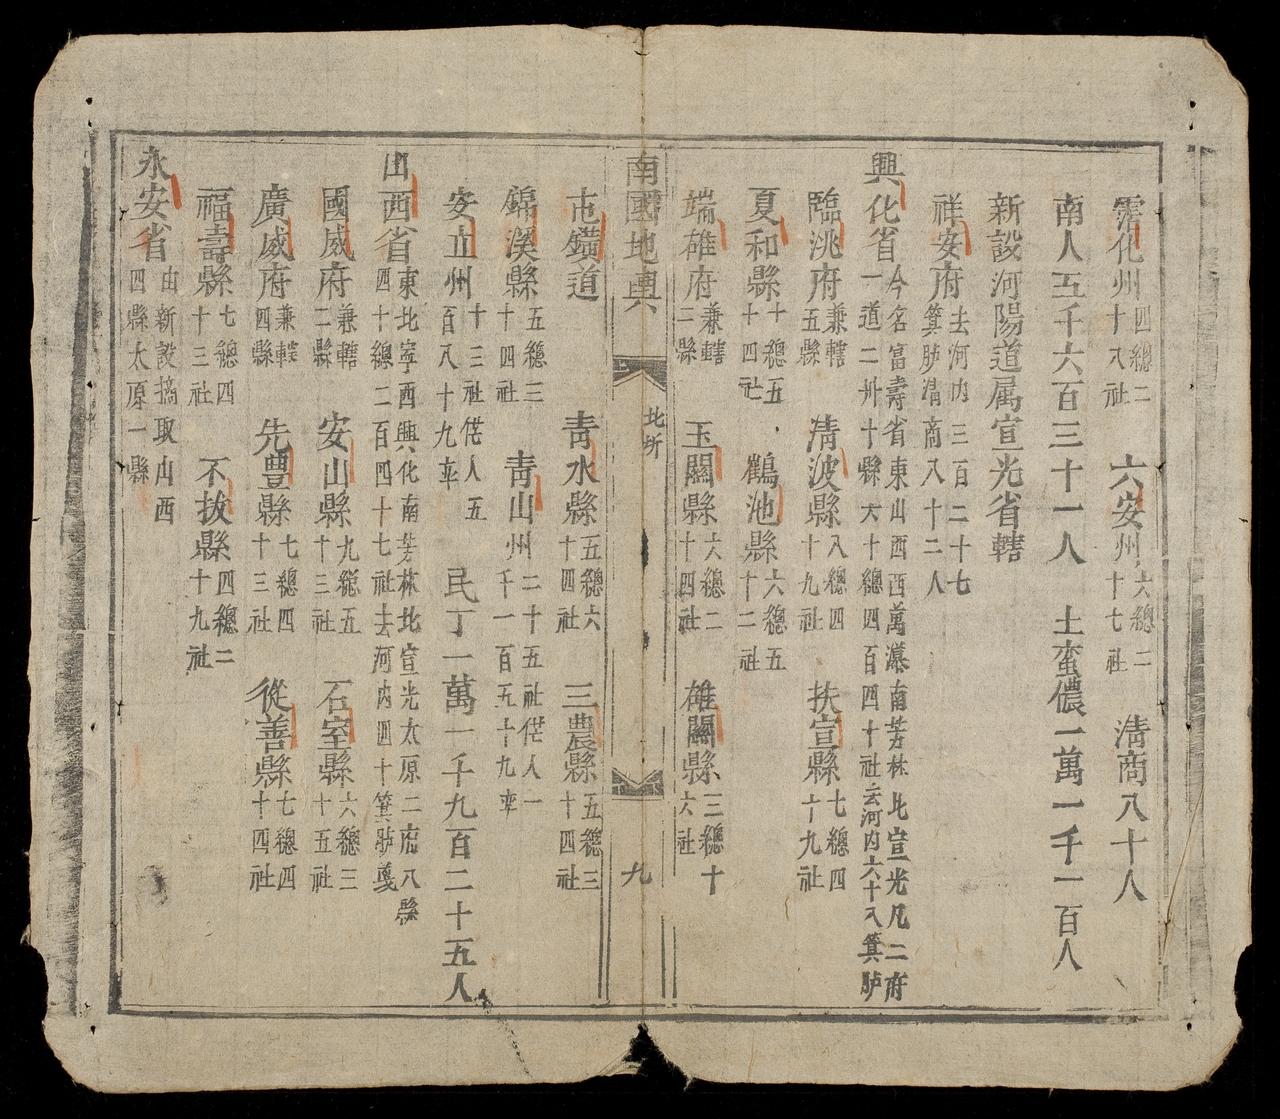 霑化州四總二十八社 六安州六總二十七社 淸商八十人
南人五千六百三十一人 土蛮儂一萬一千一百人
新設河陽道属宣光省轄
祥安府去河内三百二十七箕胪淸商八十二人
興化省今名富壽省東山西西萬瀑南芳林北宣光凡二府一道二州十縣六十總四百四十社去河内六十八箕胪
臨洮府兼轄五縣 淸波縣八總四十九社 扶宣縣七總四十九社
夏和縣十總五十四社 鶴池縣六總五十二社
端雄府兼轄二縣 玉關縣六總二十四社 雄關縣三總十六社
南國地輿 北圻 九
芚鐄道 青水縣五總六十四社 三農縣五總三十四社
錦溪縣五總三十四社 青山州二十五社偌人一千一百五十九率
安立州十三社偌人五百八十九率 民丁一萬一千九百二十五人
山西省東北寧西興化南芳林北宣光太原二府八縣四十總二百四十七社去河内四十箕胪戛
國威府兼轄二縣 安山縣九總五十三社 石室縣六總三十五社
廣威府兼轄四縣 先豊縣七總四十三社 從善縣七總四十四社
福壽縣七總四十三社 不拔縣四總二十九社
永安省由新設摘取山西四縣太原一縣